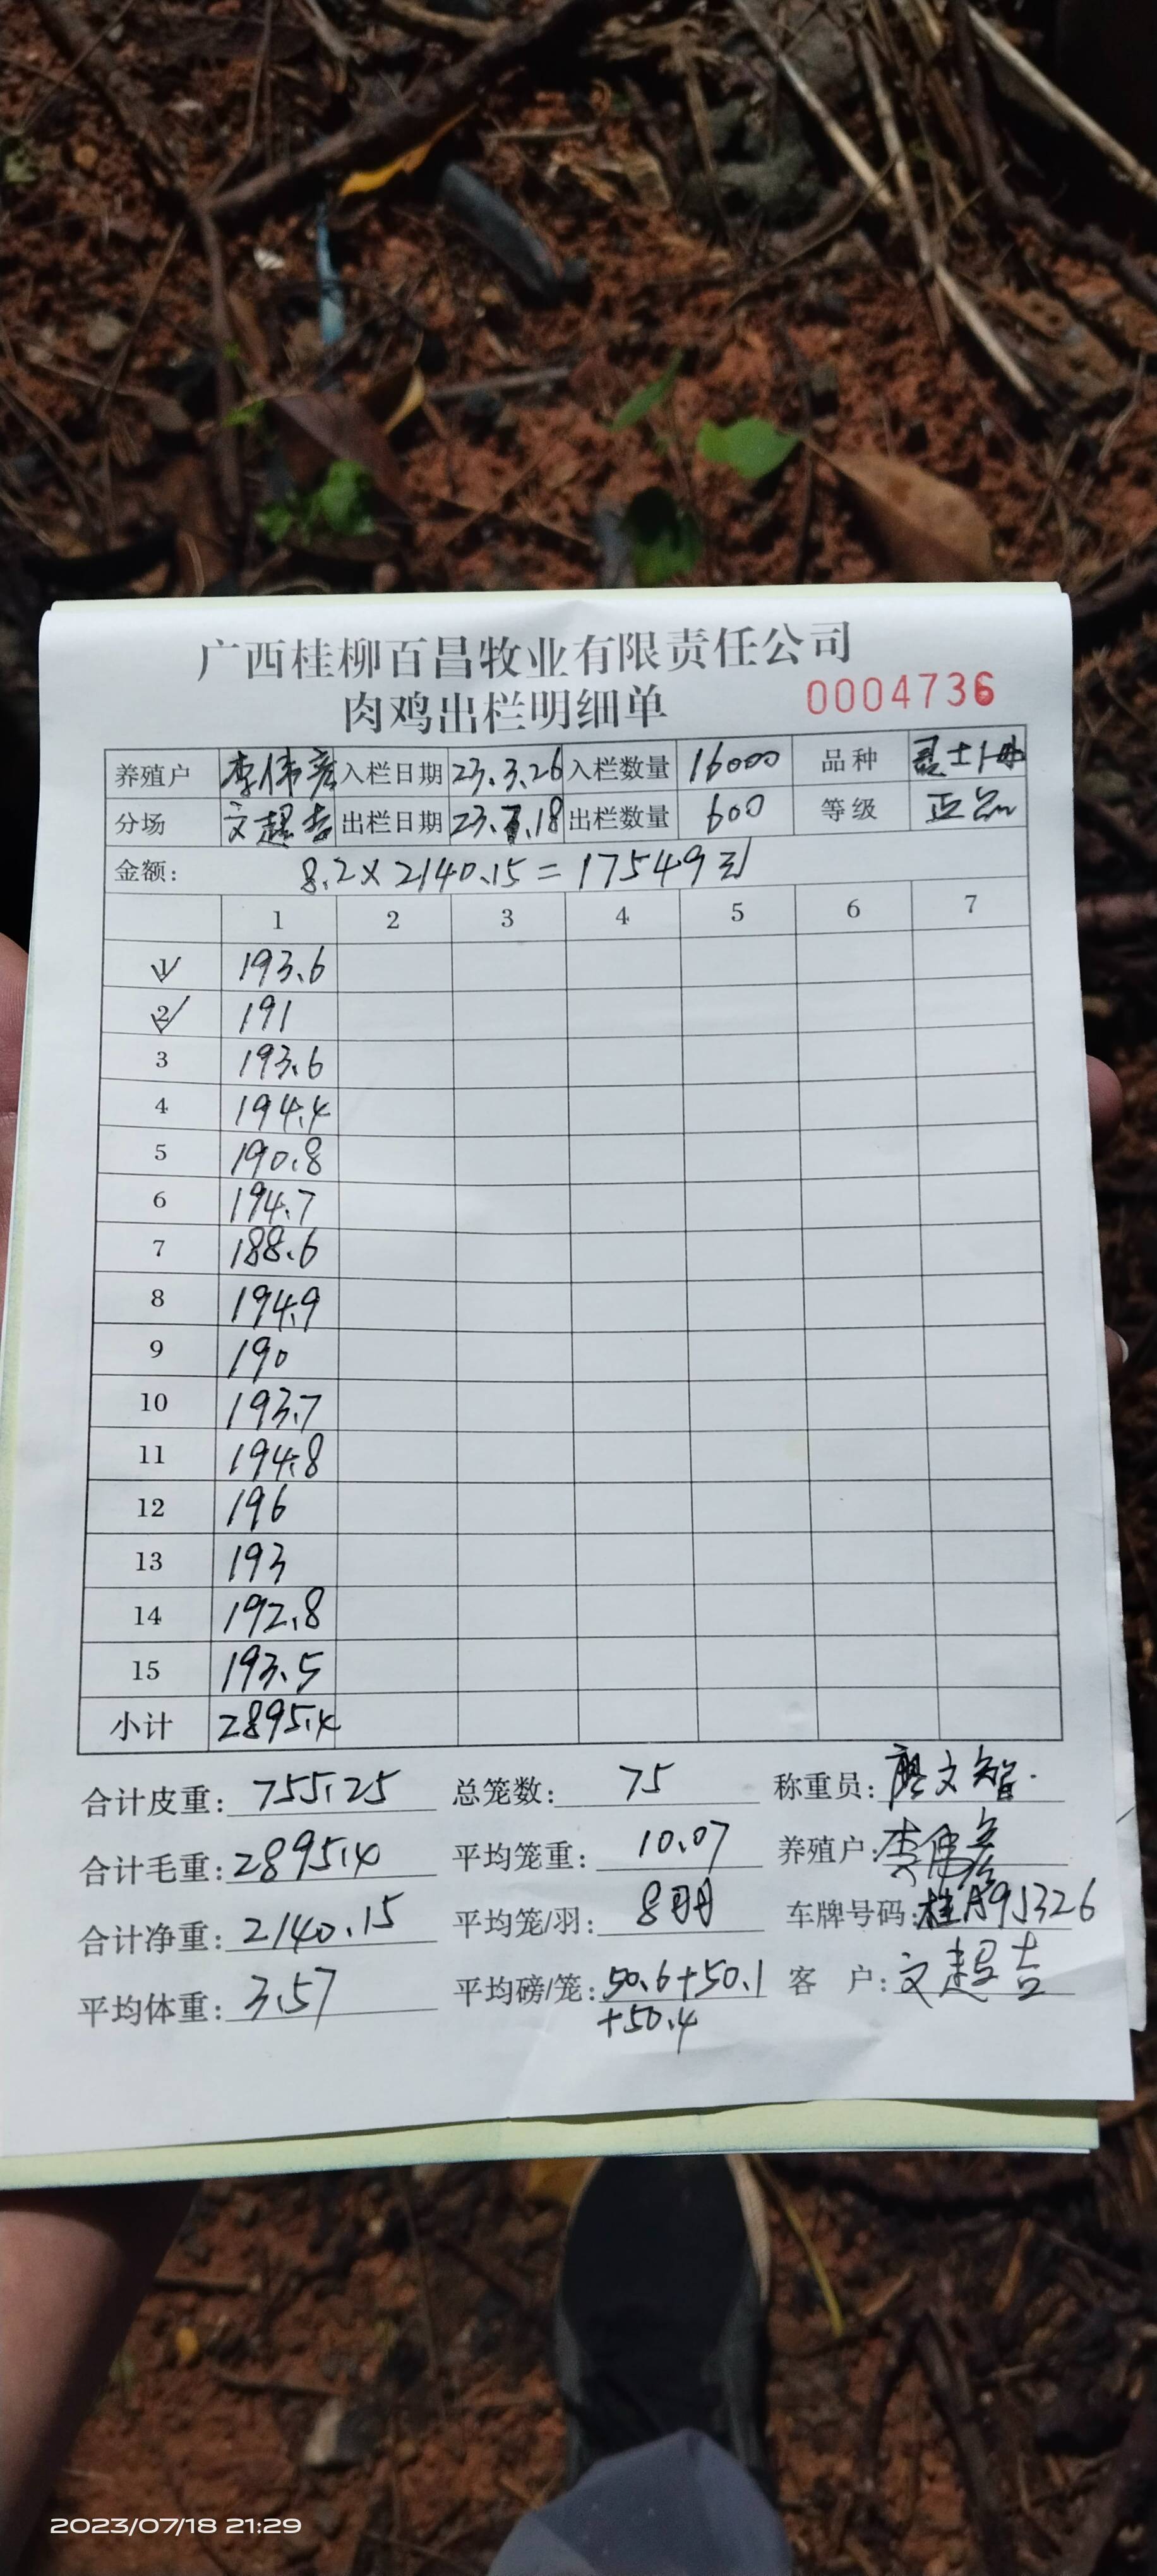 广西桂柳百昌牧业有限责任公司
肉鸡出栏明细单 0004736
养殖户 李伟彦 入栏日期 23.3.26 入栏数量 16000 品种
分场 文超吉 出栏日期 23.7.18 出栏数量 600 等级 正品
金额: 8.2×2140.15=17549元
1 2 3 4 5 6 7
1 193.6
2 191
3 193.6
4 194.4
5 190.8
6 194.7
7 188.6
8 194.9
9 190
10 193.7
11 194.8
12 196
13 193
14 192.8
15 193.5
小计 2895.4
合计皮重: 755.25 总笼数: 75 称重员: 廖文智
合计毛重: 2895.4 平均笼重: 10.07 养殖户: 李伟彦
合计净重: 2140.15 平均笼/羽: 8羽 车牌号码: 桂A95326
平均体重: 3.57 平均磅/笼: 50.6+50.1 客 户: 文超吉
+50.4
2023/07/18 21:29